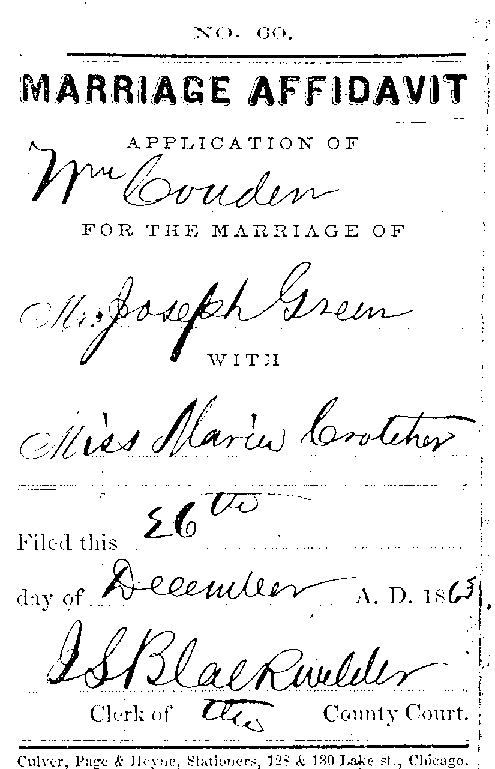 NO. 60.
MARRIAGE AFFIDAVIT
APPLICATION OF
Wm Couden
FOR THE MARRIAGE OF
Mr Joseph Green
WITH
Miss Maria Crotcher
Filed this 26th
day of December A. D. 1863.
J S Blackwelder
Clerk of the County Court.
Culver, Page & Hoyne, Stationers, 128 & 130 Lake st., Chicago.